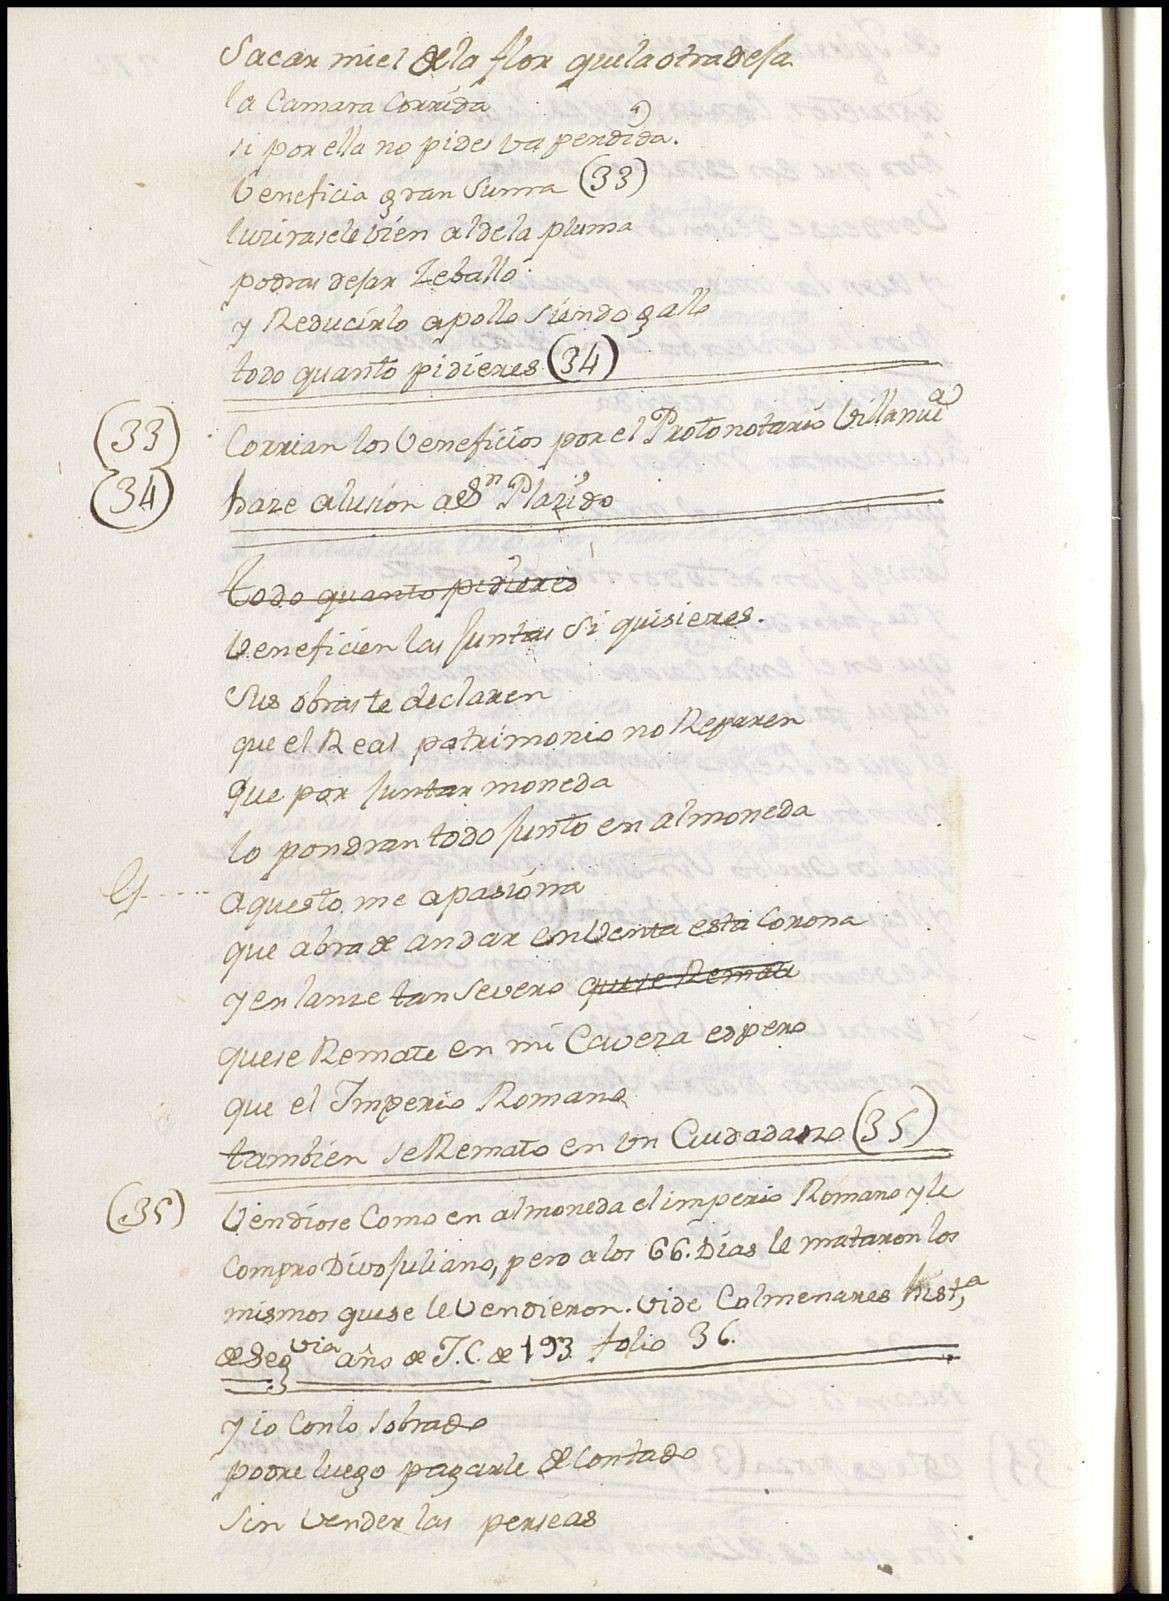 Sacar miel de la flor que la otra desa.
la Camara Corrida
si por ella no pides va perdida.
Veneficia gran Suma (33)
luzirasele bien al de la pluma
podras desar Zeballo
y Reducirlo apollo siendo gallo
todo quanto pidieres (34)
(33) Corrian los Veneficios por el Protonotario Villanua
(34) haze alusion a Sn Plazido
todo quanto pidieres
Veneficien las Juntas Si quisieres.
Sus obras te declaren
que el Real patrimonio no Reparen
que por Juntar moneda
lo pondran todo Junto en almoneda
aquesto me apasiona
que abra de andar en Venta esta Corona
y en lanze tan Severo que se Remate
que se Remate en mi Caveza espero
que el Imperio Romano
tambien se Remato en un Ciudadano (35)
(35) Vendiose Como en almoneda el imperio Romano y le
Compro Divo Juliano, pero a los 66. Dias le mataron los
mismos que se le Vendieron. vide Colmenares hista,
de Segvia año de J.C. de 193. folio 36.
y io Con lo Sobrado
podre luego pagarle de Contado
Sin Vender las perseas